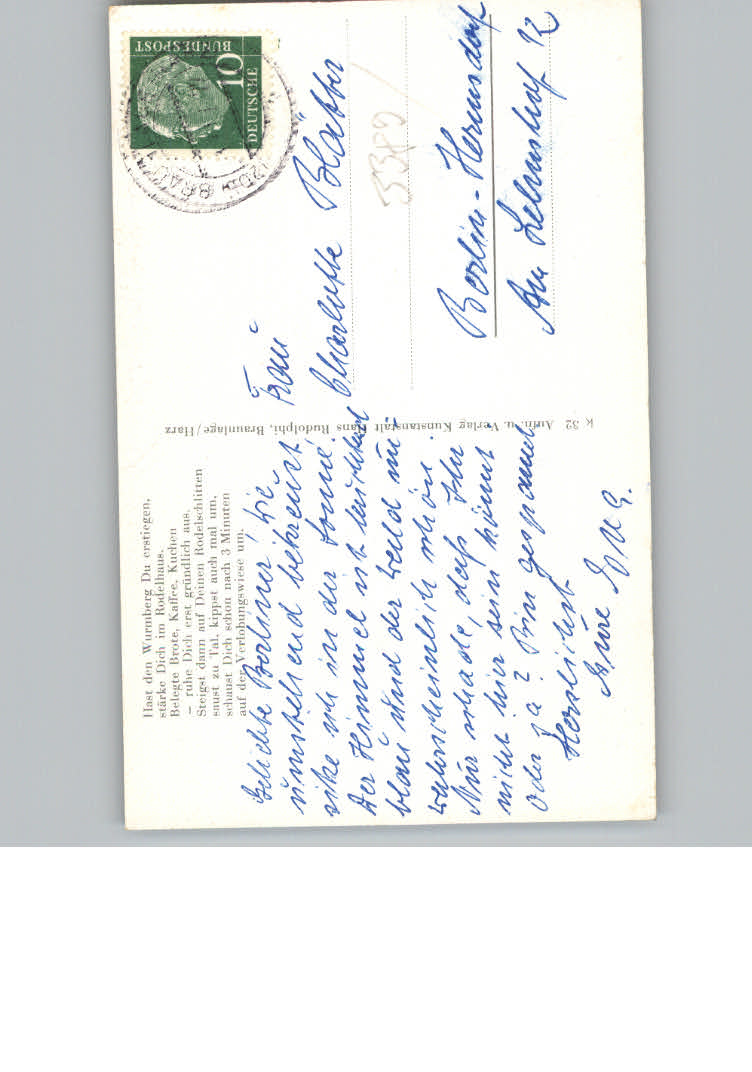 Hast den Wurmberg Du erstiegen,
stärke Dich im Rodelhaus.
Belegte Brote, Kaffee, Kuchen
– ruhe Dich erst gründlich aus.
Steigst dann auf Deinen Rodelschlitten
saust zu Tal, kippst auch mal um,
schaust Dich schon nach 3 Minuten
auf der Verlobungswiese um.
Geliebte Berliner! Wie
umstehend bekreuzt
sitze ich in der Sonne.
Der Himmel ist leuchtend
blau und der Wald un-
wahrscheinlich schön.
Nur schade, daß Ihr
nicht hier sein könnt
oder ja? Bin gespannt
Herzlichst
Eure
K 32 Aufn. u. Verlag Kunstanstalt Hans Rudolphi, Braunlage/Harz
DEUTSCHE
BUNDESPOST
10
Frau
Charlotte Blätter
3389
Berlin-Hermsdorf
Am 12